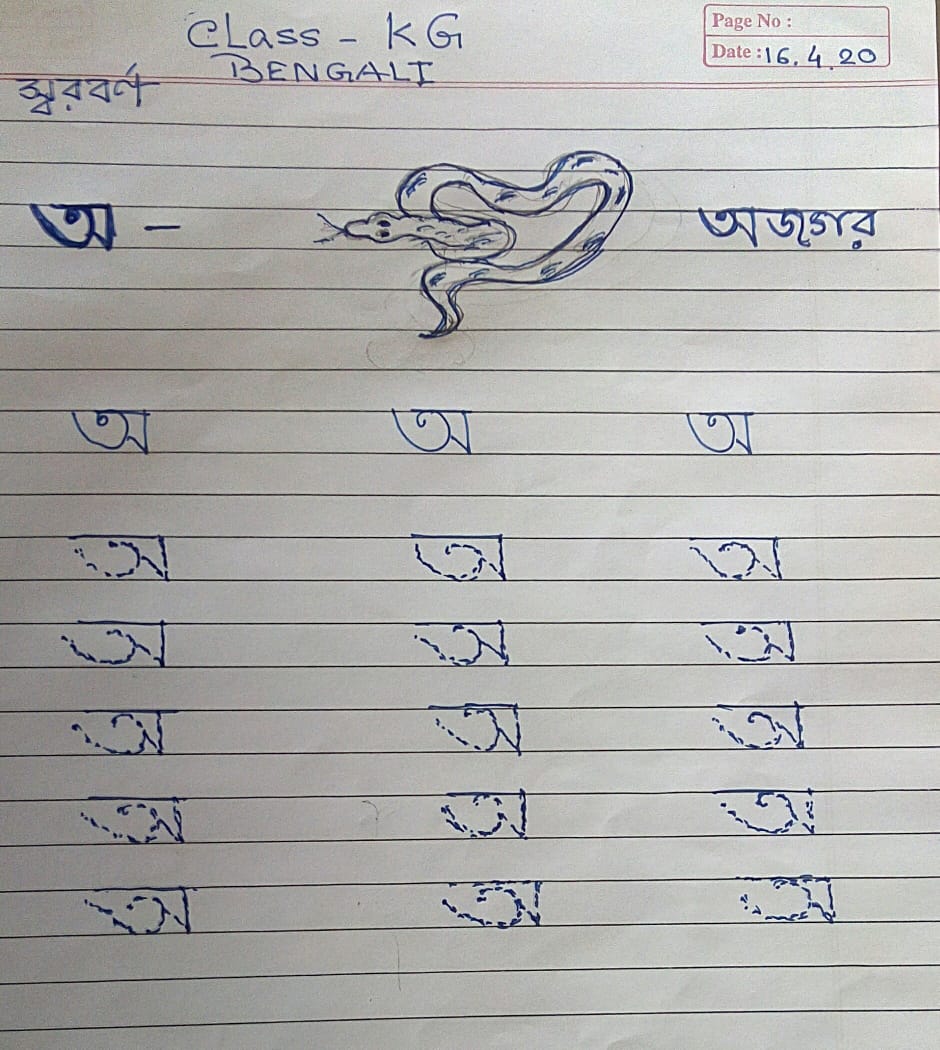 CLass - KG
Page No :
Date : 16.4.20
BENGALI
স্বরবর্ণ
অ - অজগর
অ অ অ
অ অ অ
অ অ অ
অ অ অ
অ অ অ
অ অ অ